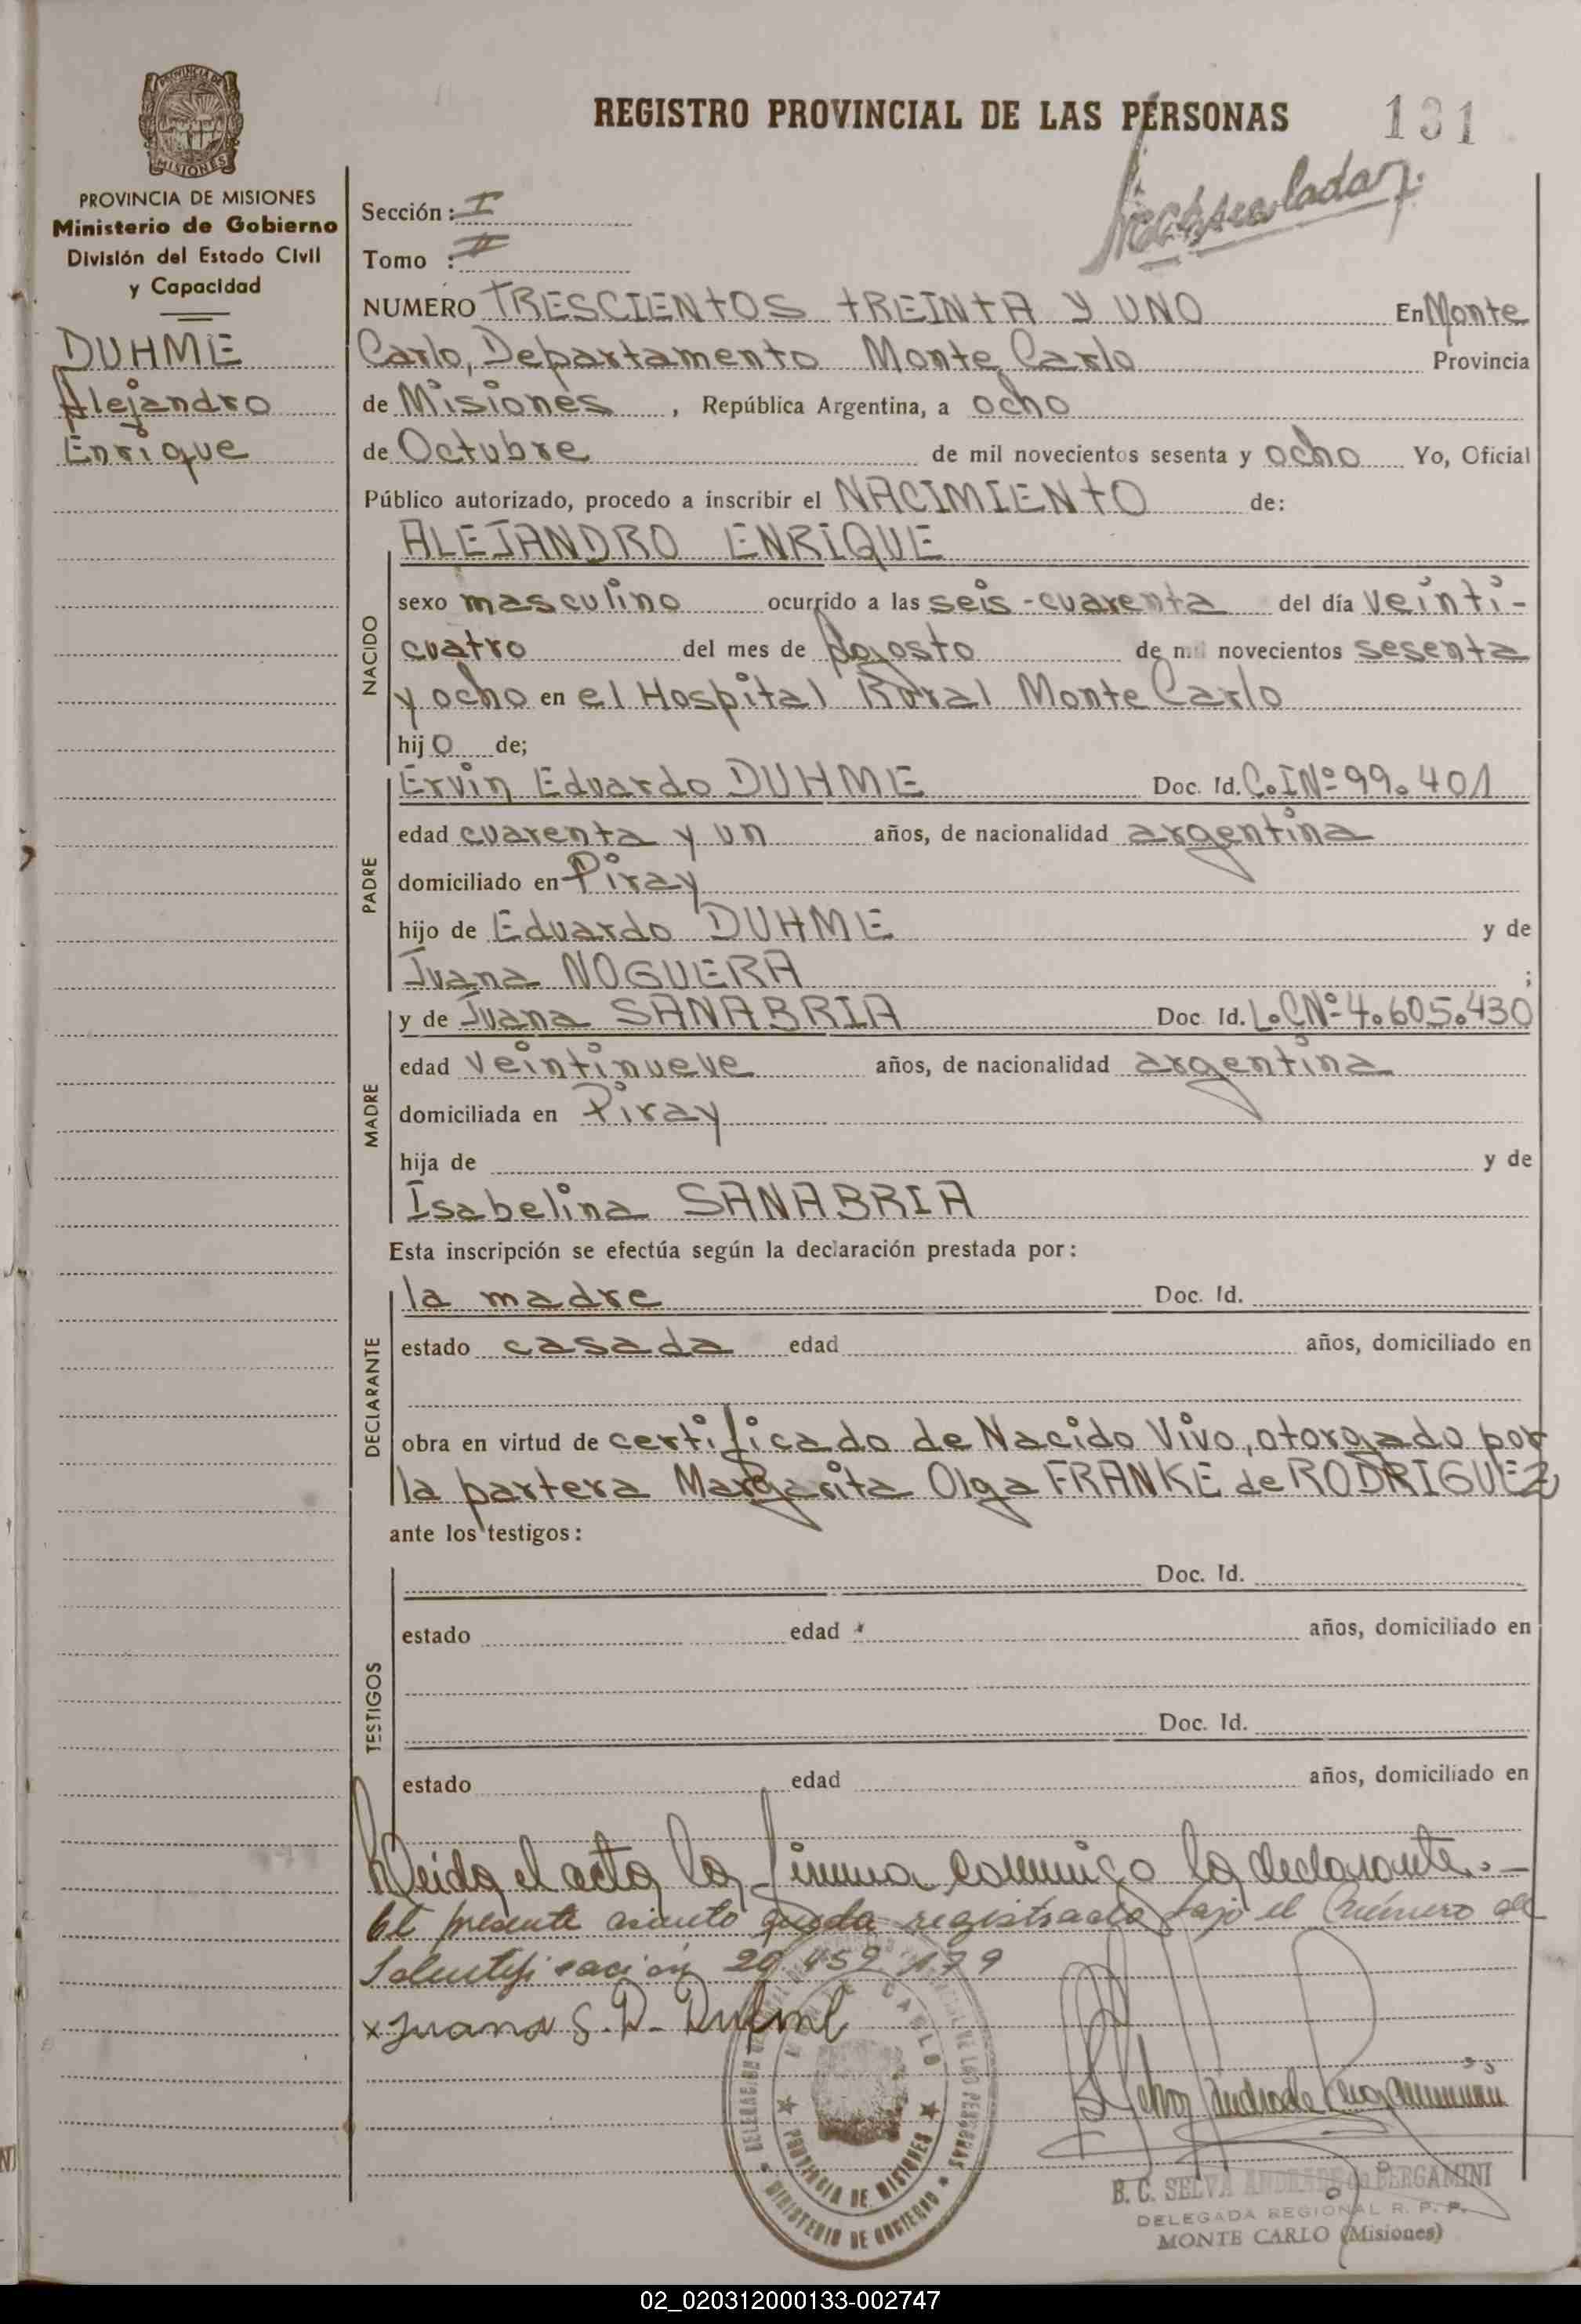 REGISTRO PROVINCIAL DE LAS PERSONAS 131
PROVINCIA DE MISIONES
MISIONES
PROVINCIA DE MISIONES
Ministerio de Gobierno
División del Estado Civil
y Capacidad
DUHME
Alejandro
Enrique
Sección: I
Tomo : II
NUMERO TRESCIENTOS TREINTA Y UNO En Monte
Carlo, Departamento Monte Carlo Provincia
de Misiones, República Argentina, a ocho
de Octubre de mil novecientos sesenta y ocho Yo, Oficial
Público autorizado, procedo a inscribir el NACIMIENTO de:
NACIDO
ALEJANDRO ENRIQUE
sexo masculino ocurrido a las seis-cuarenta del día veinti-
cuatro del mes de Agosto de mil novecientos sesenta
y ocho en el Hospital Rural Monte Carlo
hijo de;
PADRE
Ervin Eduardo DUHME Doc. Id. C.I Nº 99.401
edad cuarenta y un años, de nacionalidad argentina
domiciliado en Piray
hijo de Eduardo DUHME y de
Juana NOGUERA ;
MADRE
y de Juana SANABRIA Doc. Id. L.C Nº 4.605.430
edad veintinueve años, de nacionalidad argentina
domiciliada en Piray
hija de y de
Isabelina SANABRIA
Esta inscripción se efectúa según la declaración prestada por:
DECLARANTE
la madre Doc. Id.
estado casada edad años, domiciliado en
obra en virtud de certificado de Nacido Vivo, otorgado por
la partera Margarita Olga FRANKE de RODRIGUEZ
ante los testigos:
TESTIGOS
Doc. Id.
estado edad años, domiciliado en
Doc. Id.
estado edad años, domiciliado en
Leida el acta la firma conmigo la declarante.-
El presente asiento queda registrado bajo el Número de
Identificación 20 452 179
x Juana S. D. Duhme
MONTE CARLO
PROVINCIA DE MISIONES
MINISTERIO DE GOBIERNO
B. C. SELVA ANDRADE de BERGAMINI
DELEGADA REGIONAL R. P. P.
MONTE CARLO (Misiones)
02_020312000133-002747